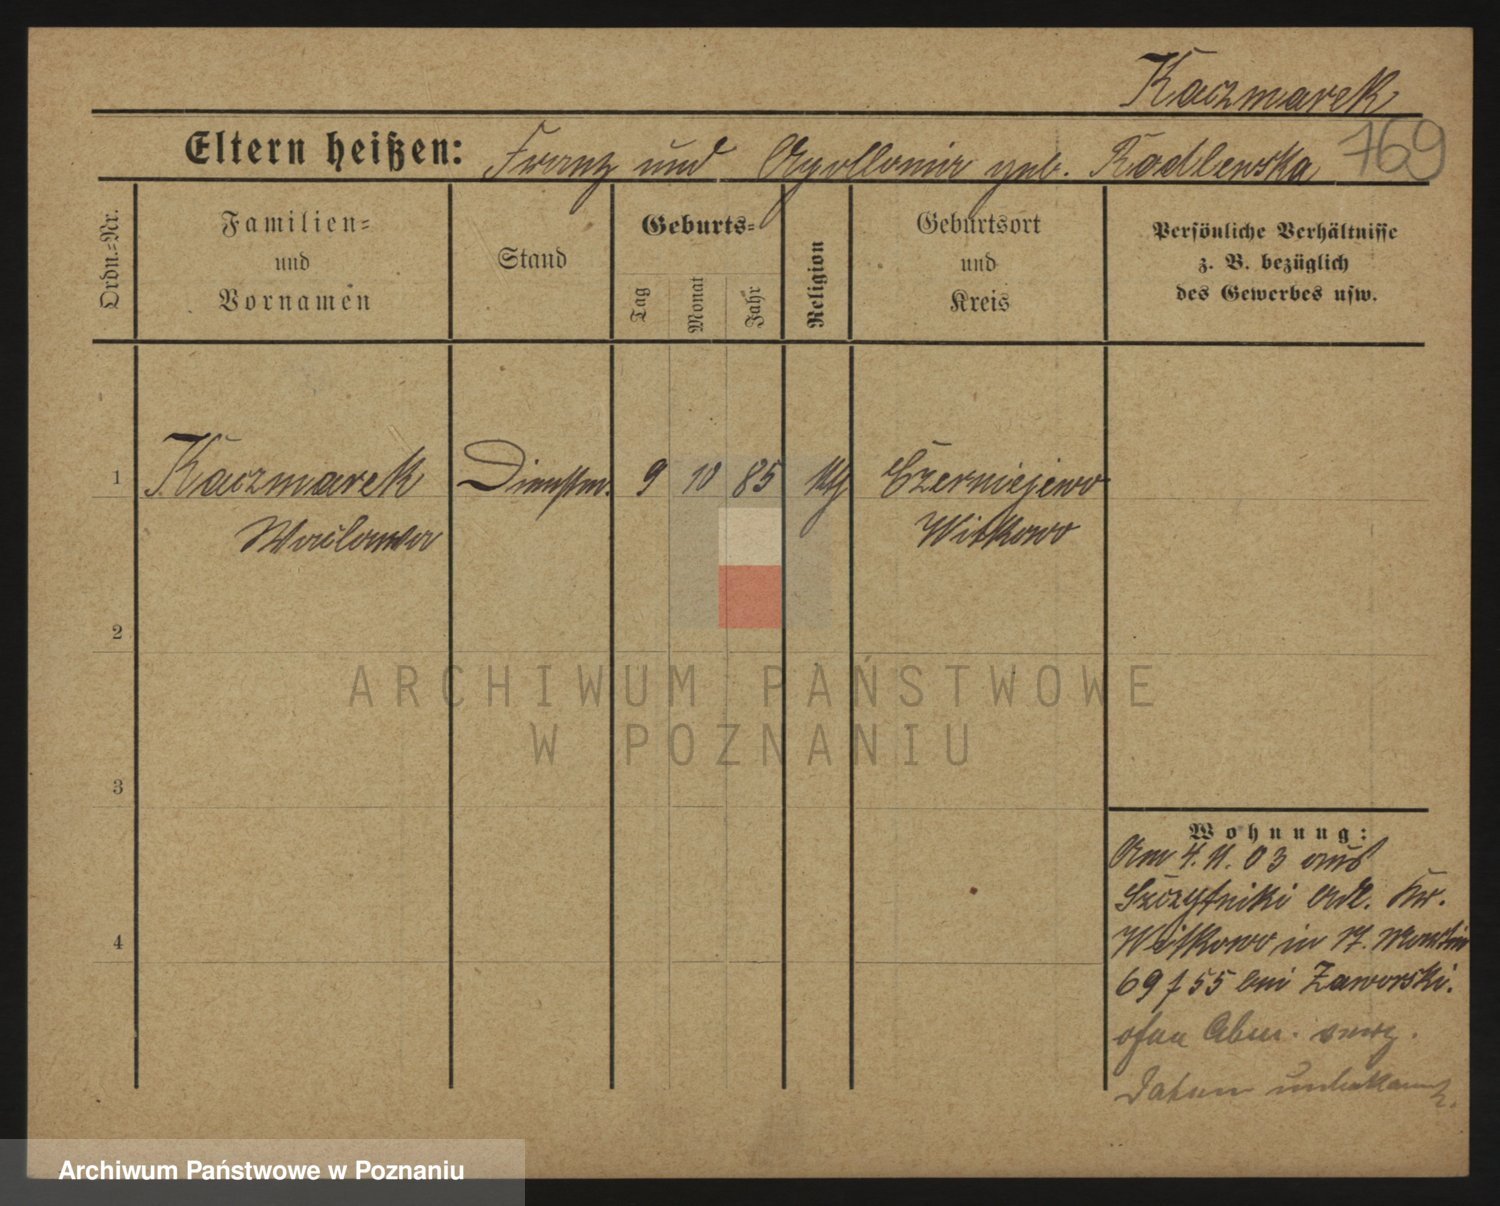 Kaczmarek
769
Eltern heißen: Franz und Apollonia geb. Kadlewska
Ordn.=Nr.
Familien=
und
Vornamen
Stand
Geburts=
Tag
Monat
Jahr
Religion
Geburtsort
und
Kreis
Persönliche Verhältnisse
z. B. bezüglich
des Gewerbes usw.
1 Kaczmarek Dienstm. 9 10 85 Czerniejewo
Waclawa Witkowo
2
ARCHIWUM PAŃSTWOWE
W POZNANIU
3
Wohnung:
Am 4.11.03 aus
Szczytniki Adl. Kr.
Witkowo in St. Martin
69 f 55 bei Zaworski.
ohne Abm. verz.
Datum unbekannt.
4
Archiwum Państwowe w Poznaniu